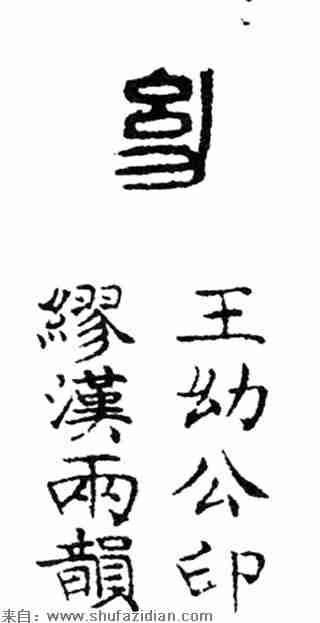 幼
王幼公印
繆漢兩韻
来自：www.shufazidian.com